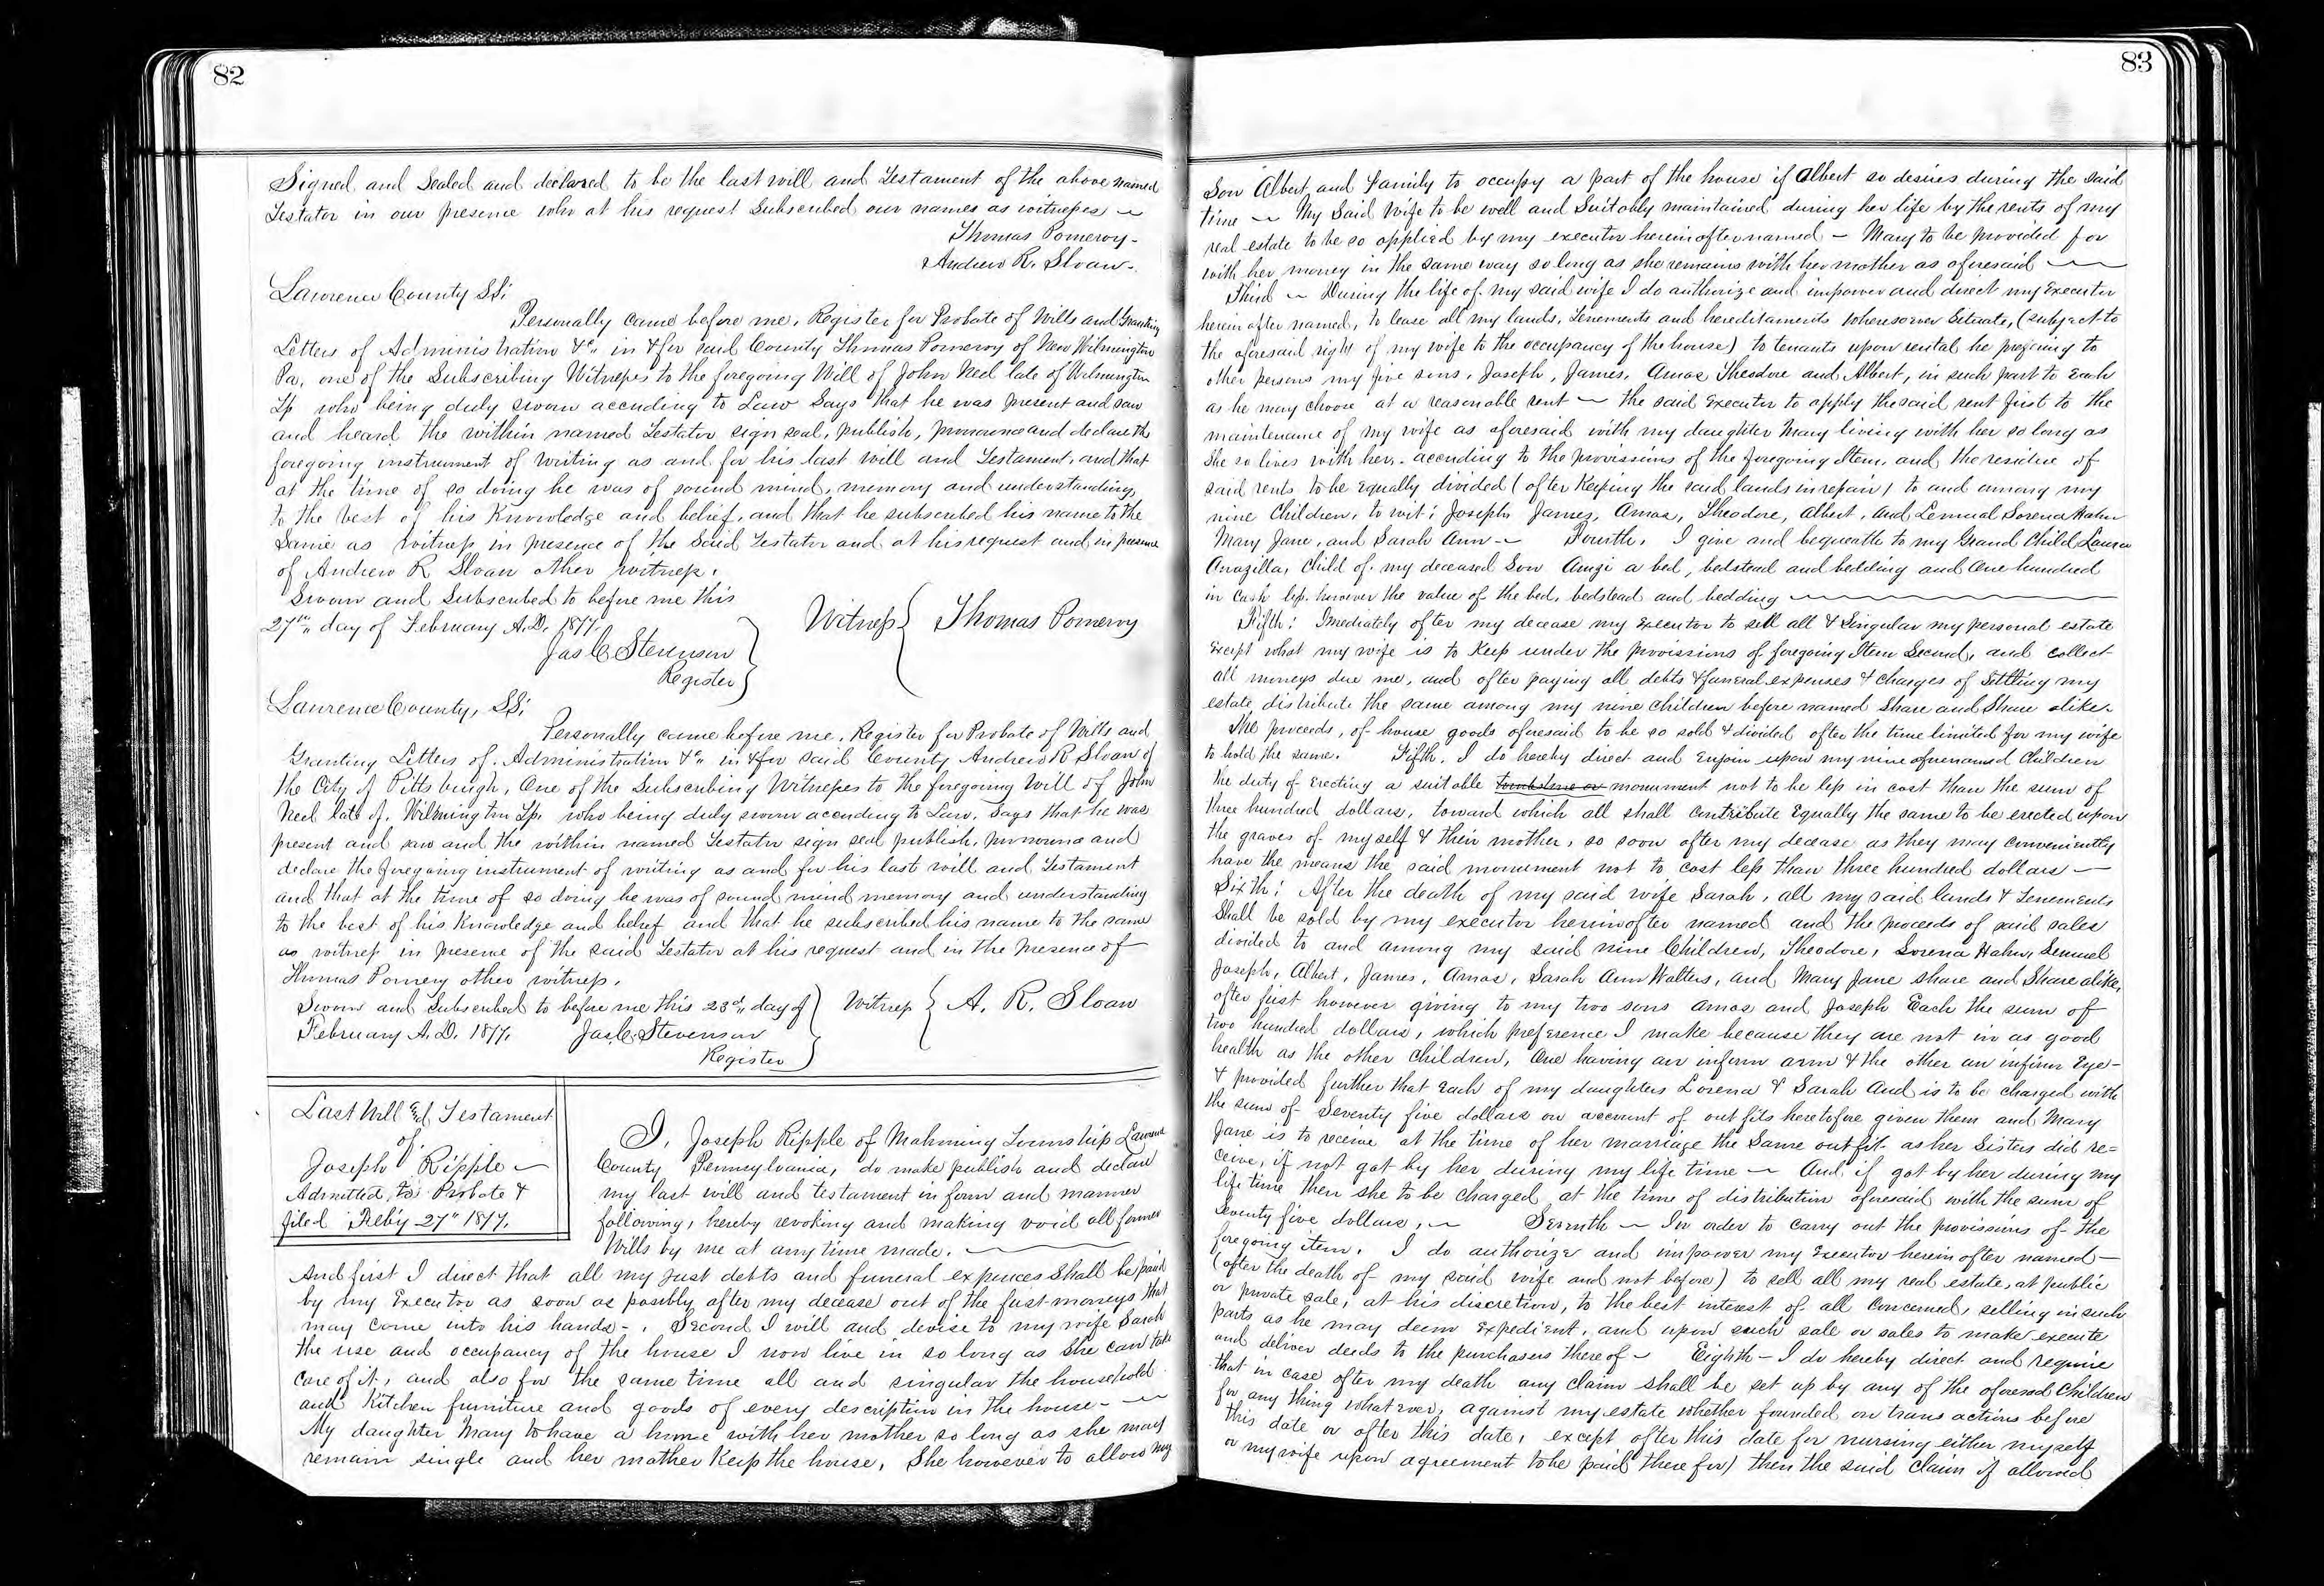 82
Signed and Sealed and declared to be the last will and Testament of the above named
Testator in our presence who at his request Subscribed our names as witnesses
Thomas Pomeroy-
Andrew R. Sloan-
Lawrence County SS;
Personally came before me, Register for Probate of Wills and Granting
Letters of Administration &c., in & for said County Thomas Pomeroy of New Wilmington
Pa, one of the Subscribing Witnesses to the foregoing Will of John Neel late of Wilmington
Tp who being duly sworn according to Law Says that he was present and saw
and heard the within named Testator sign seal, publish, pronounce and declare the
foregoing instrument of writing as and for his last will and Testament, and that
at the time of so doing he was of sound mind, memory and understanding,
to the best of his Knowledge and belief, and that he subscribed his name to the
Same as witness in presence of the Said Testator and at his request and in presence
of Andrew R Sloan other witness.
Sworn and Subscribed to before me this
27th day of February A.D. 1877.
Jas C Stevenson
Register
Witness Thomas Pomeroy
Lawrence County, SS;
Personally came before me, Register for Probate of Wills and
Granting Letters of Administration &c in & for said County Andrew R Sloan of
the City of Pittsburgh, One of the Subscribing Witnesses to the foregoing Will of John
Neel late of Wilmington Tp. who being duly sworn according to Law, Says that he was
present and saw and the within named Testator sign seal publish, pronounce and
declare the foregoing instrument of writing as and for his last will and Testament
and that at the time of so doing he was of sound mind memory and understanding
to the best of his Knowledge and belief and that he subscribed his name to the same
as witness in presence of the said Testator at his request and in the presence of
Thomas Pomery other witness.
Sworn and Subscribed to before me this 23d,, day of
February A.D. 1877.
Jas. C. Stevenson
Register
Witness A. R. Sloan
Last Will and Testament
of
Joseph Ripple
Admitted to Probate &
filed Feby 27" 1877.
I, Joseph Ripple of Mahoning Township Lawrence
County Pennsylvania, do make publish and declare
my last will and testament in form and manner
following, hereby revoking and making void all former
Wills by me at any time made.
And first I direct that all my just debts and funeral expences Shall be paid
by my Executor as soon as possibly after my decease out of the first moneys that
may come into his hands-. Second I will and devise to my wife Sarah
the use and occupancy of the house I now live in so long as She can take
care of it, and also for the same time all and singular the household
and Kitchen furniture and goods of every description in the house-
My daughter Mary to have a home with her mother so long as she may
remain single and her mother Keep the house, She however to allow my
83
Son Albert and family to occupy a part of the house if Albert so desires during the said
time - My Said Wife to be well and Suitably maintained during her life by the rents of my
real estate to be so applied by my executor hereinafter named - Mary to be provided for
with her money in the same way so long as she remains with her mother as aforesaid
Third - During the life of my said wife I do authorize and impower and direct my Executor
herein after named, to lease all my lands, Tenements and hereditaments wheresoever Situate, (subject to
the aforesaid right of my wife to the occupancy of the house) to tenants upon rental he prefering to
other persons my five sons, Joseph, James, Amos Theodore and Albert, in such part to Each
as he may choose at a reasonable rent - the said Executor to apply the said rent first to the
maintenance of my wife as aforesaid with my daughter Mary living with her so long as
She so lives with her. according to the provissions of the foregoing Item, and the residue of
said rents to be equally divided (after Keeping the said lands in repair) to and among my
nine Children, to wit; Joseph James, Amos, Theodore, Albert, and Lemual Lorena Hahn
Mary Jane, and Sarah Ann - Fourth, I give and bequeath to my Grand Child Laura
Child of my deceased Son a bed, bedstead and bedding and One hundred
in Cash less however the value of the bed, bedstead and bedding
Fifth: Imediately after my decease my Executor to sell all & Singular my personal estate
Except what my wife is to Keep under the provissions of foregoing Item Second, and Collect
all moneys due me, and after paying all debts & funeral expenses & charges of Settling my
estate, distribute the same among my nine children before named Share and Share alike.
The proceeds, of house goods aforesaid to be so sold & divided after the time limited for my wife
to hold the same. Fifth. I do hereby direct and Enjoin upon my nine aforenamed Children
the duty of Erecting a suitable tombstone or monument not to be less in cost than the sum of
three hundred dollars, toward which all shall Contribute Equally the same to be erected upon
the graves of myself & their mother, so soon after my decease as they may conveniently
have the means the said monument not to cost less than three hundred dollars
Sixth: After the death of my said wife Sarah, all my said lands & Tenements
Shall be sold by my executor hereinafter named and the proceeds of said sales
divided to and among my said nine Children, Theodore, Lorena Hahn, Lemuel
Joseph, Albert, James, Amos, Sarah Ann Walters, and Mary Jane share and Share alike,
after first however giving to my two sons Amos and Joseph Each the sum of
two hundred dollars, which preference I make because they are not in as good
health as the other children, One having an infirm arm & the other an infirm Eye-
& provided further that Each of my daughters Lorena & Sarah and is to be charged with
the sum of Seventy five dollars on account of outfits heretofore given them and Mary
Jane is to receive at the time of her marriage the Same outfit as her Sisters did re=
ceive, if not got by her during my life time - And if got by her during my
life time then she to be charged at the time of distribution aforesaid with the sum of
Seventy five dollars. Seventh - In order to carry out the provissions of the
foregoing item. I do authorize and impower my Executor herein after named-
(after the death of my said wife and not before) to sell all my real estate, at public
or private sale, at his discretion, to the best interest of all Concerned, selling in such
parts as he may deem Expedient, and upon such sale or sales to make execute
and deliver deeds to the purchasers thereof - Eighth - I do hereby direct and require
that in case after my death any claim shall be set up by any of the aforesd Children
for any thing whatever, against my estate whether founded on trans actions before
this date or after this date, except after this date for nursing either myself
or my wife upon agreement to be paid therefor) then the said Claim if allowed